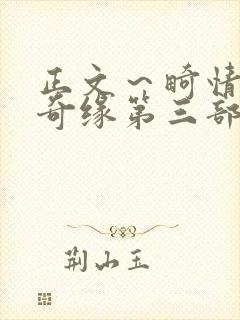 正文~畸情
奇缘第三部
荆山玉